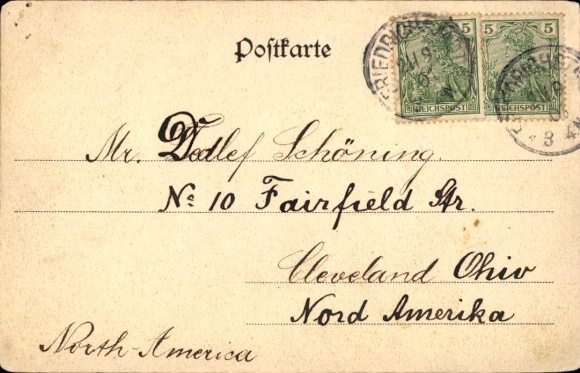 Postkarte
5 5
REICHSPOST REICHSPOST
Mr. Detlef Schöning.
No. 10 Fairfield Str.
Cleveland Ohio
Nord Amerika
North-America